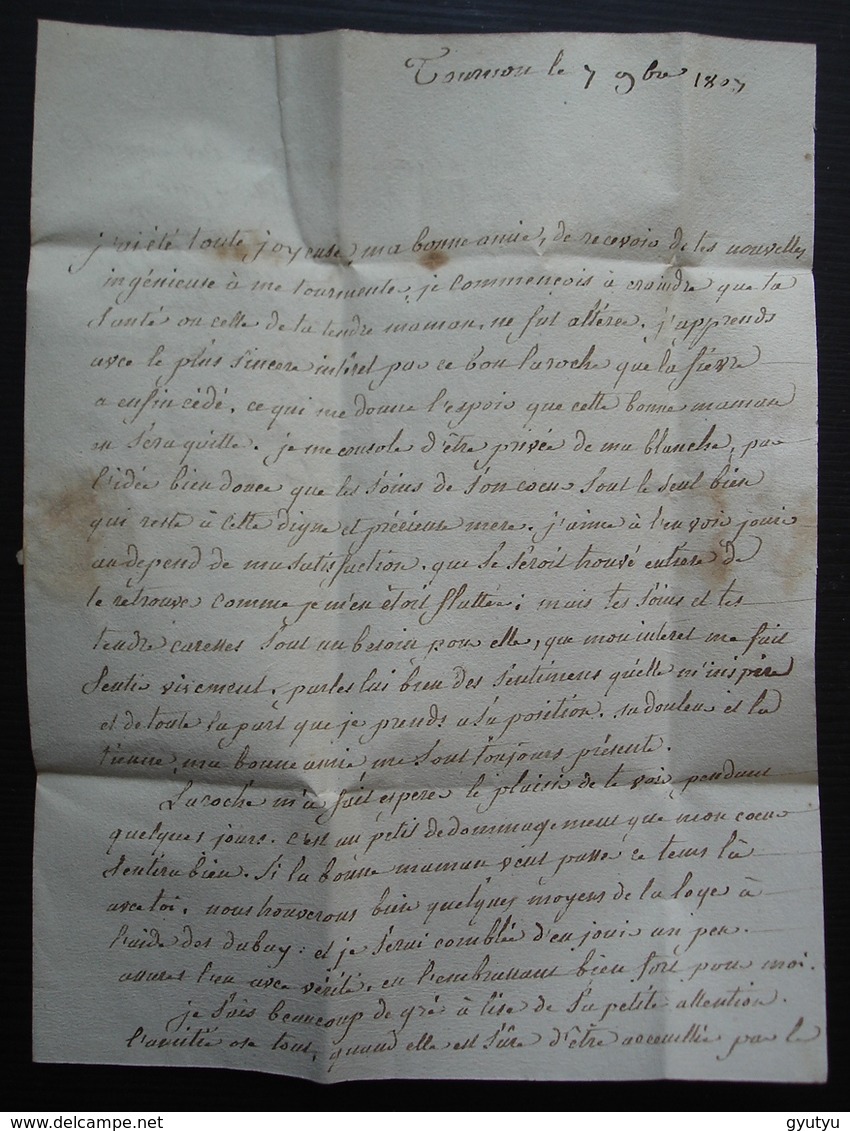 Tournon le 7 9bre 1807
j'ai été toute joyeuse, ma bonne amie, de recevoir de tes nouvelles
ingénieuse à me tourmente, je commençois à craindre que ta
santé ou celle de ta tendre maman, ne fut altéré. j'apprends
avec le plus sincere intéret par ce bon laroche que la fièvre
a enfin cédé, ce qui me donne l'espoir que cette bonne maman
en sera quitte. je me console d'être privée de ma blanche, par
l'idée bien douce que les soins de son coeur sont le seul bien
qui reste à cette digne et précieuse mere. j'aime à l'en voir jouir
au depend de ma satisfaction. que se seroit trouvé entière de
te rétrouver comme je m'en étoit flattée; mais tes soins et tes
tendre caresses sont un besoin pour elle, que mon interet me fait
sentir vivement. parles lui bien des sentimens qu'elle m'inspire
et de toute la part que je prends a sa position. sa douleur et la
tienne ma bonne amie me sont toujours présente.
Laroche m'a fait esperer le plaisir de te voir pendant
quelques jours. c'est un petit dedommagement que mon coeur
sentira bien. Si ta bonne maman veut passer ce tems là
avec toi. nous trouverons bien quelques moyens de la loger à
l'aide des dubay: et je serai comblée d'en jouir un peu.
assures l'en avec vérité, en l'embrassant bien fort pour moi.
je sais beaucoup de gré à lise de sa petite attention.
l'amitié ose tout, quand elle est sûre d'être accueillie par le
gyutyu